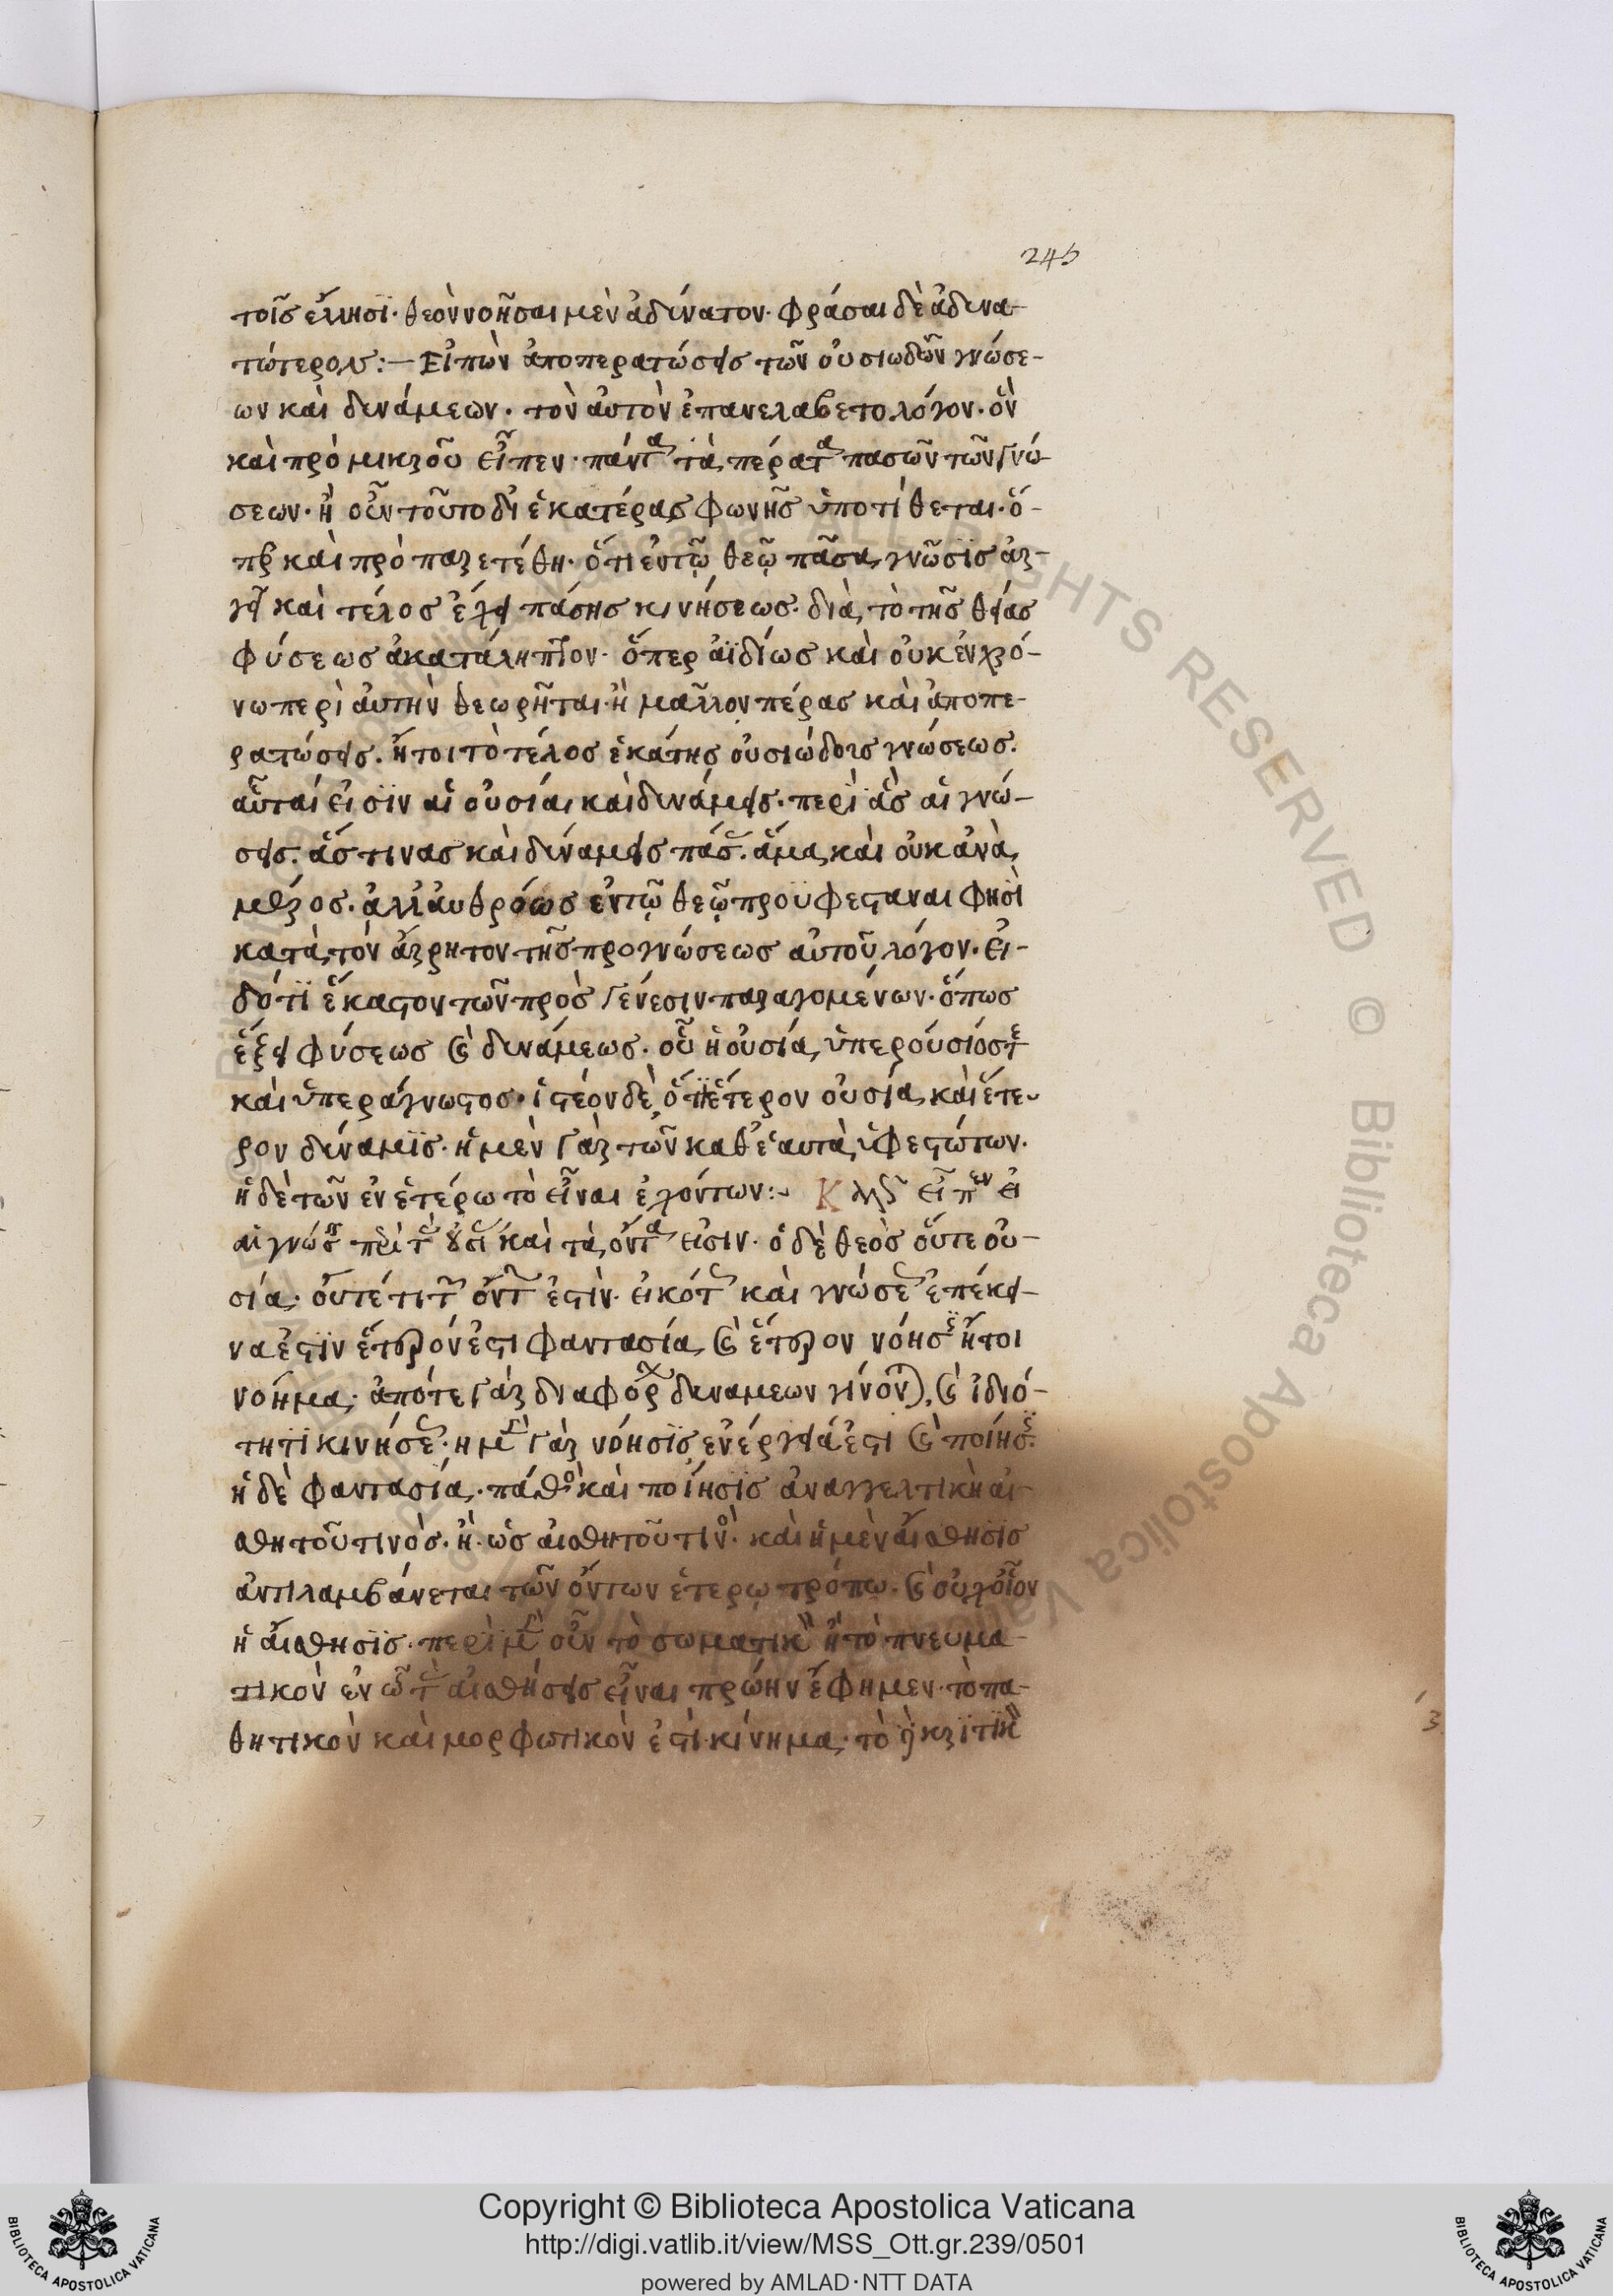 245
τοῖς ἕλλησϊ· θεὸν νοῆσαι μὲν ἀδύνατον· φράσαι δὲ ἀδυνα-
τώτερον:— Εἰπὼν ἀποπερατώσεις τῶν οὐσιωδῶν γνώσε-
ων καὶ δυνάμεων· τὸν αὐτὸν ἐπανελαβετο λόγον· ὃν
καὶ πρὸ μικροῦ εἶπεν· πάντα τὰ πέρατα πασῶν τῶν γνώ-
σεων· ἢ οὖν τοῦτο δι ἑκατέρας φωνῆς ὑποτίθεται· ὅ-
περ καὶ πρὸ παρετέθη· ὅτι ἐν τῷ θεῷ πᾶσα γνῶσϊς ἀρ-
γεῖ καὶ τέλος ἔχει πάσης κινήσεως· διὰ τὸ τῆς θείας
φύσεως ἀκατάληπτον· ὅπερ ἀϊδίως καὶ οὐκ ἐν χρό-
νω περὶ αὐτὴν θεωρῆται· ἢ μᾶλλον πέρας καὶ ἀποπε-
ρατώσεις. ἤτοι τὸ τέλος ἑκάτης οὐσιώδους γνώσεως.
αὗταί εἰσϊν αἱ οὐσίαι καὶ δυνάμεις· περὶ ἃς αἱ γνώ-
σεις. ἅς τινας καὶ δυνάμεις πάσας. ἅμα καὶ οὐκ ἀνὰ
μέρος. ἀλλ' ἀυθρόως ἐν τῷ θεῷ προϋφεσταναι φησὶ
κατὰ τὸν ἄρρητον τῆς προγνώσεως αὐτοῦ λόγον. εἰ-
δότϊ ἕκαστον τῶν πρὸς γένεσιν παραγομένων· ὅπως
ἕξει φύσεως καὶ δυνάμεως. οὗ ἡ οὐσία ὑπερούσιός τε
καὶ ὑπεράγνωστος. ἰστέον δὲ ὅτι ἕτερον οὐσία καὶ ἕτε-
ρον δύναμϊς. ἡ μὲν γὰρ τῶν καθ' ἑαυτὰ ὑφεστώτων.
ἡ δὲ τῶν ἐν ἑτέρω τὸ εἶναι ἐχόντων:- Καλῶς εἶπεν εἰ
αἱ γνώσεις περὶ τὰς οὐσίας καὶ τὰ ὄντα εἰσιν. ὁ δὲ θεὸς οὔτε οὐ-
σία. οὔτέ τι τῶν ὄντων ἐστὶν. εἰκότως καὶ γνώσεως ἐπέκει-
να ἐστϊν ἕτερόν ἐστι φαντασία καὶ ἕτερον νόησις ἤτοι
νόημα. ἀπό τε γὰρ διαφόρων δυναμεων γίνονται, καὶ ἰδιό-
τητϊ κινήσεως. ἡ μὲν γὰρ νόησϊς ἐνέργειά ἐστι καὶ ποίησις.
ἡ δὲ φαντασία. πάθος καὶ ποίησϊς ἀναγγελτικὴ αἰ-
σθητοῦ τινὸς. ἢ ὡς αἰσθητοῦ τινὸς. καὶ ἡ μὲν αἴσθησϊς
ἀντιλαμβάνεται τῶν ὄντων ἑτερω τρόπω. καὶ οὐχ οἷον
ἡ αἴσθησϊς. περὶ μὲν οὖν τὸ σωματικὸν ἢ τὸ πνευμα-
τικὸν ἐν ᾧ τὰς αἰσθήσεις εἶναι πρώην ἔφημεν. τὸ πα-
θητικὸν καὶ μορφωτικὸν ἐστὶ κίνημα. τὸ γὰρ κρϊτϊκὸν
Copyright © Biblioteca Apostolica Vaticana
http://digi.vatlib.it/view/MSS_Ott.gr.239/0501
powered by AMLAD·NTT DATA